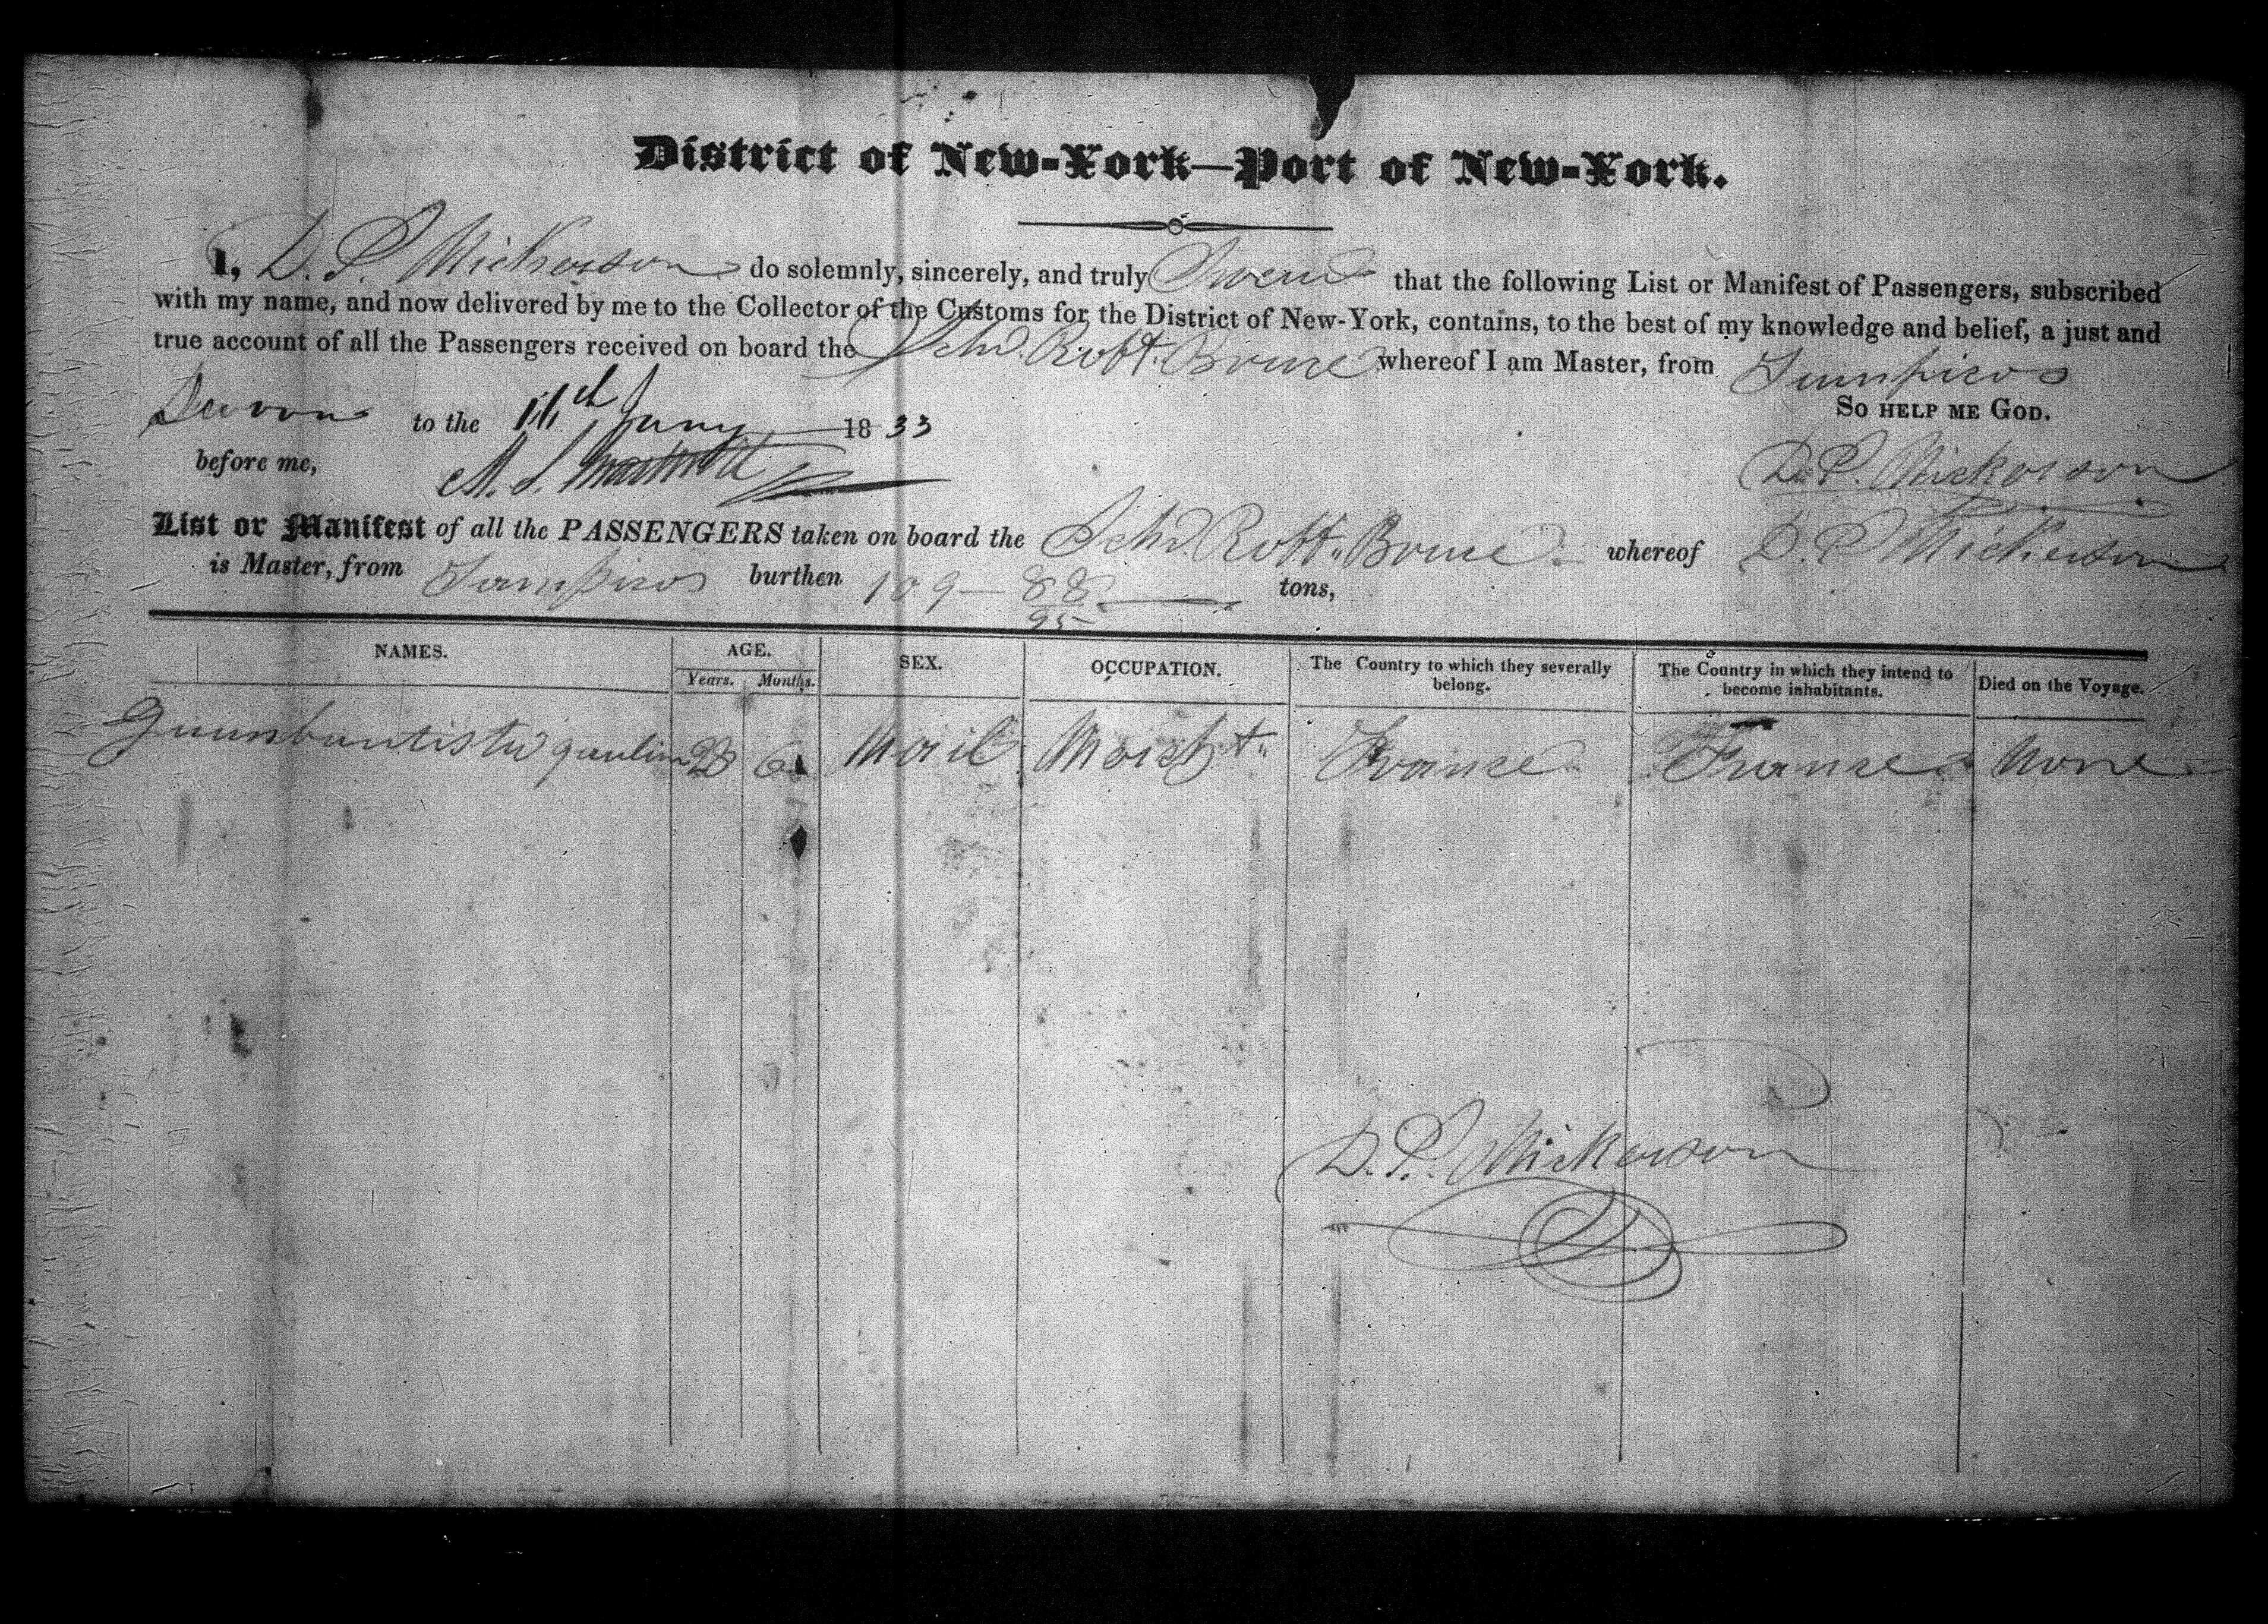 District of New-York—Port of New-York.
I, D. P. Nickerson do solemnly, sincerely, and truly Swear that the following List or Manifest of Passengers, subscribed
with my name, and now delivered by me to the Collector of the Customs for the District of New-York, contains, to the best of my knowledge and belief, a just and
true account of all the Passengers received on board the Schr. Robt. Bruce whereof I am Master, from Tampico
So HELP ME GOD.
Sworn to the 11th Jany 1833
before me,
D. P. Nickerson
List or Manifest of all the PASSENGERS taken on board the Schr. Robt. Bruce whereof D. P. Nickerson
is Master, from Tampico burthen 109-88/95 tons,
NAMES. AGE. SEX. OCCUPATION. The Country to which they severally belong. The Country in which they intend to become inhabitants. Died on the Voyage.
Years. Months.
28 6 Mail March't France France None
D. P. Nickerson